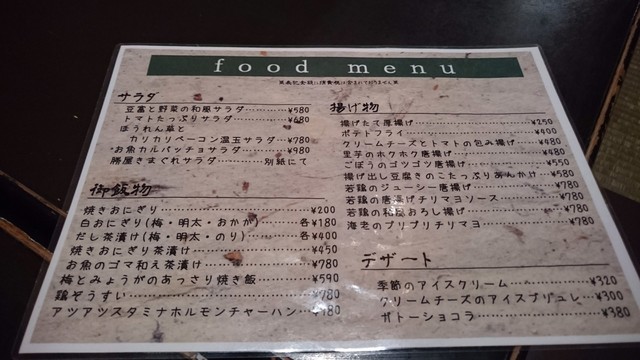 food menu
サラダ
豆富と野菜の和風サラダ…………¥580
トマトたっぷりサラダ…………¥680
ほうれん草と
カリカリベーコン温玉サラダ……¥780
お魚カルパッチョサラダ…………¥980
勝屋きまぐれサラダ…………別紙にて
御飯物
焼きおにぎり…………¥200
白おにぎり(梅・明太・おかか)……各¥180
だし茶漬け(梅・明太・のり)……各¥400
焼きおにぎり茶漬け…………¥450
お魚のゴマ和え茶漬け…………¥780
梅とみょうがのあっさり焼き飯……¥590
鶏ぞうすい…………¥780
アツアツスタミナホルモンチャーハン…
揚げ物
揚げたて厚揚げ…………¥250
ポテトフライ…………¥400
クリームチーズとトマトの包み揚げ……¥480
里芋のホクホク唐揚げ…………¥480
ごぼうのゴツゴツ唐揚げ…………¥550
揚げ出し豆腐きのこたっぷりあんかけ…¥580
若鶏のジューシー唐揚げ…………¥780
若鶏の唐揚げチリマヨソース……¥780
若鶏の和風おろし揚げ…………¥780
海老のプリプリチリマヨ…………¥780
デザート
季節のアイスクリーム…………¥320
クリームチーズのアイスブリュレ…¥300
ガトーショコラ…………¥380